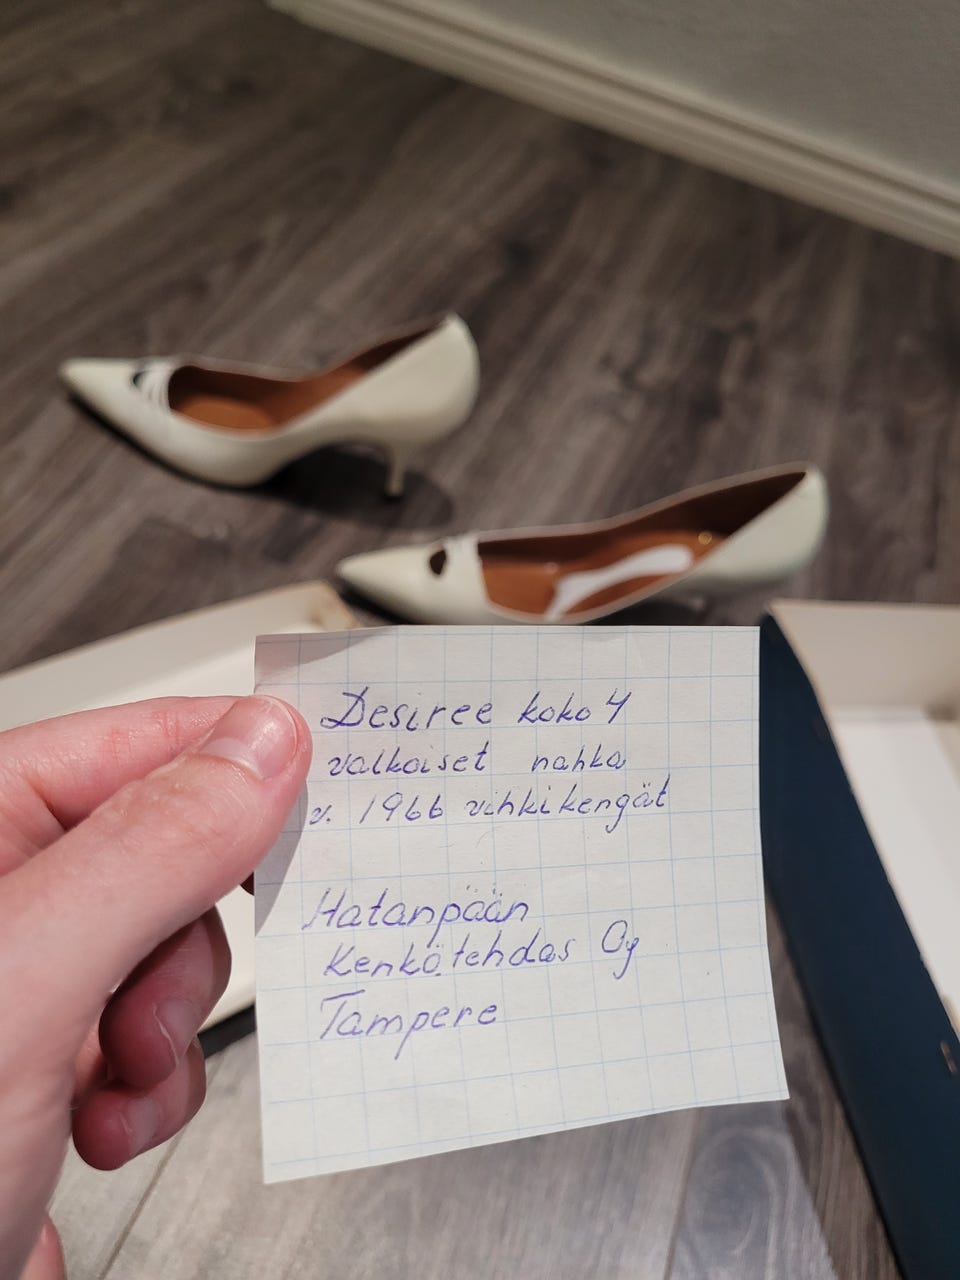 Desiree koko 4
valkoiset nahka
v. 1966 vihkikengät
Hatanpään
Kenkätehdas Oy
Tampere